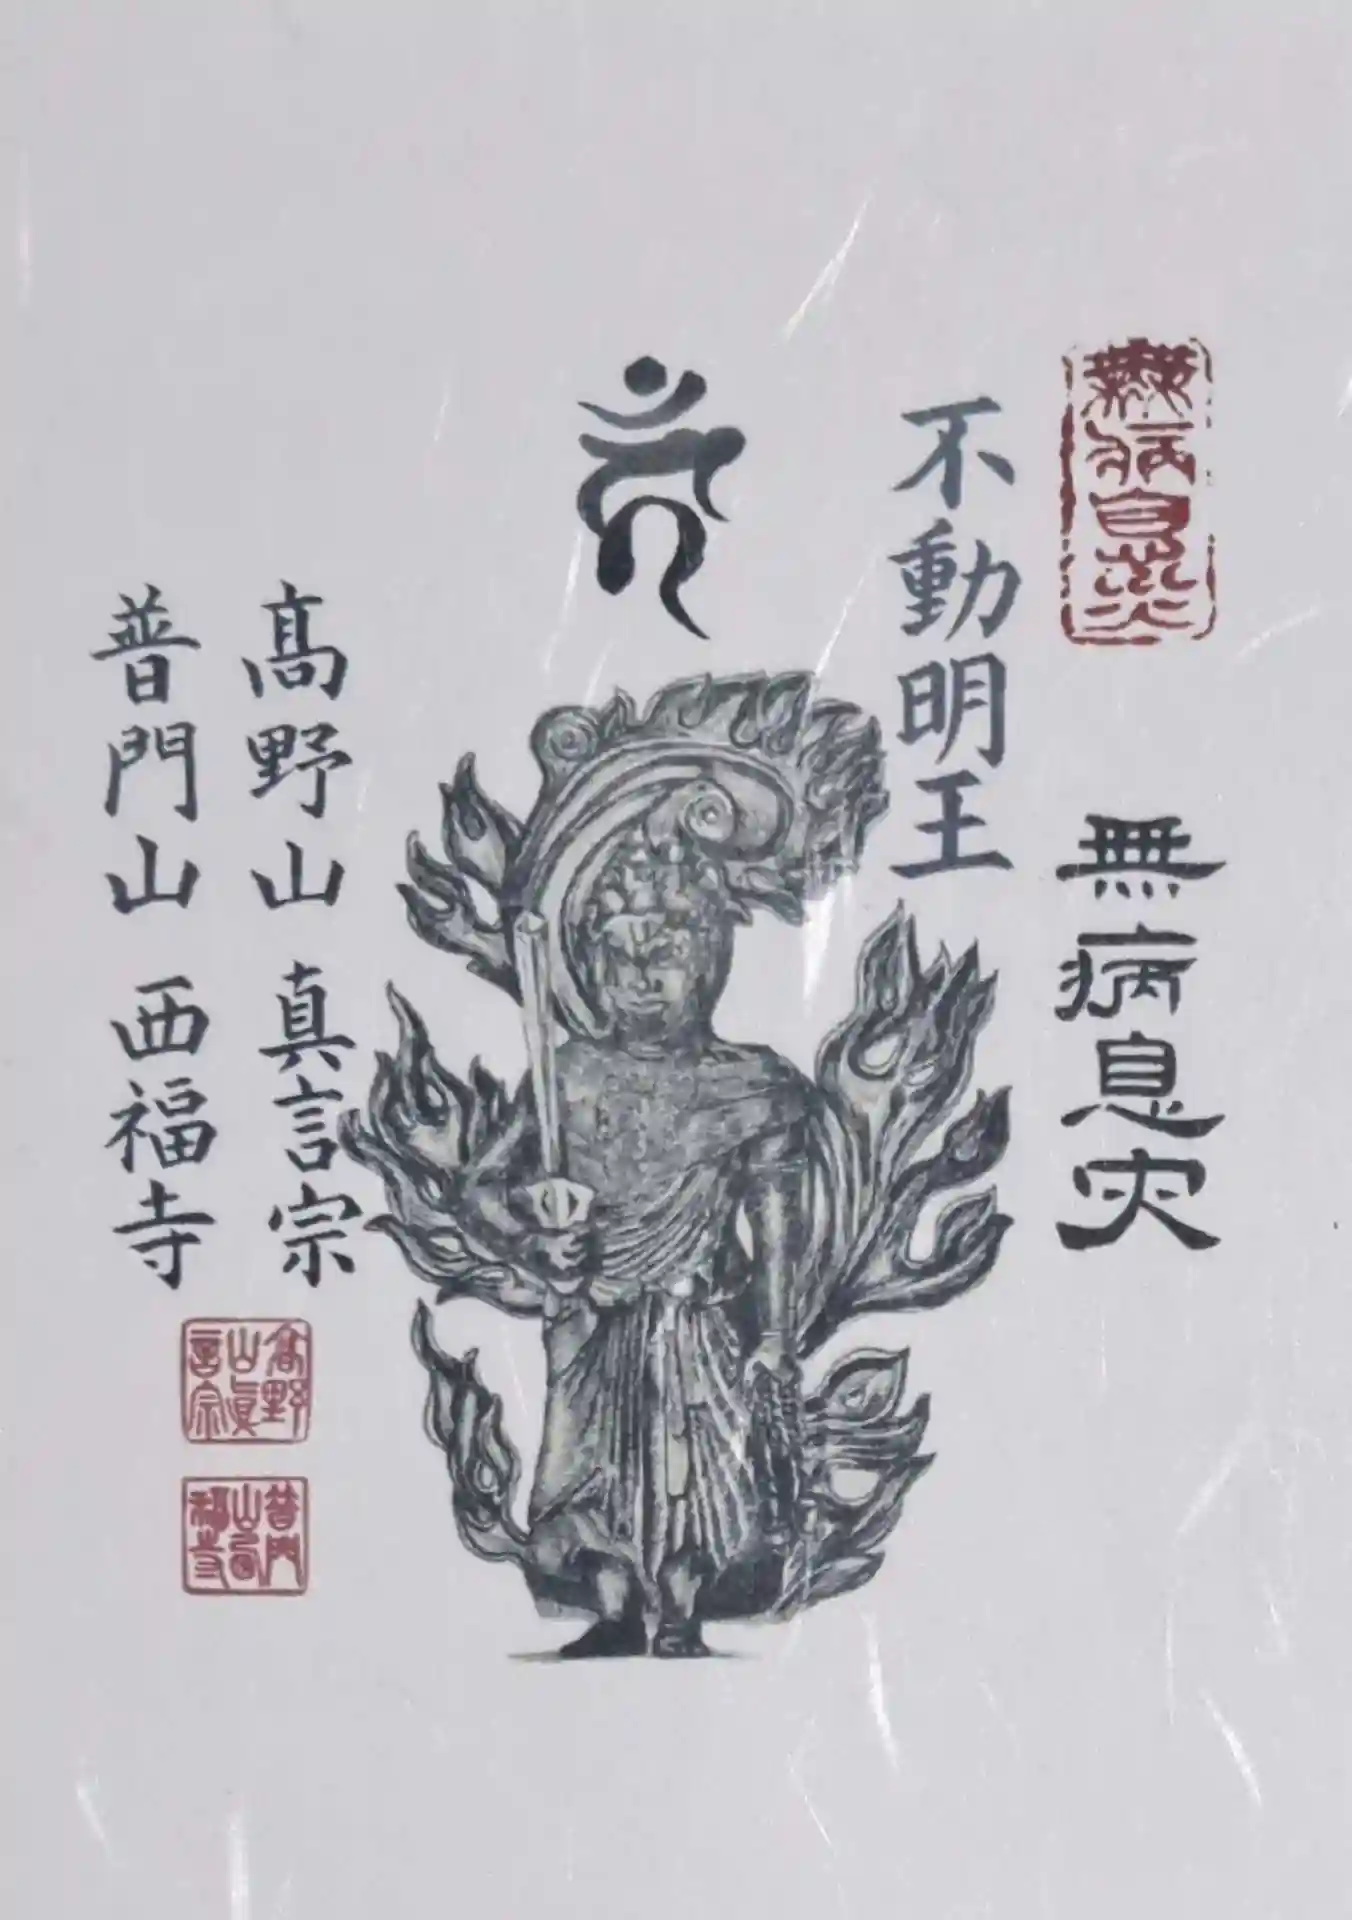 無病息災
無病息災
不動明王
高野山 真言宗
普門山 西福寺
高野山真言宗
普門山西福寺